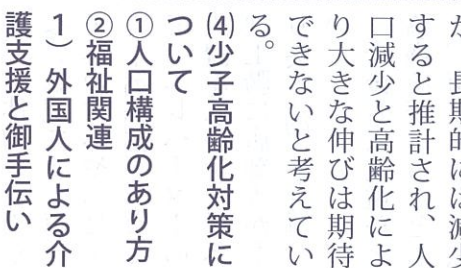 か、長期的には減少
すると推計され、人
口減少と高齢化によ
り大きな伸びは期待
できないと考えてい
る。
(4)少子高齢化対策に
ついて
①人口構成のあり方
②福祉関連
1）外国人による介
護支援と御手伝い